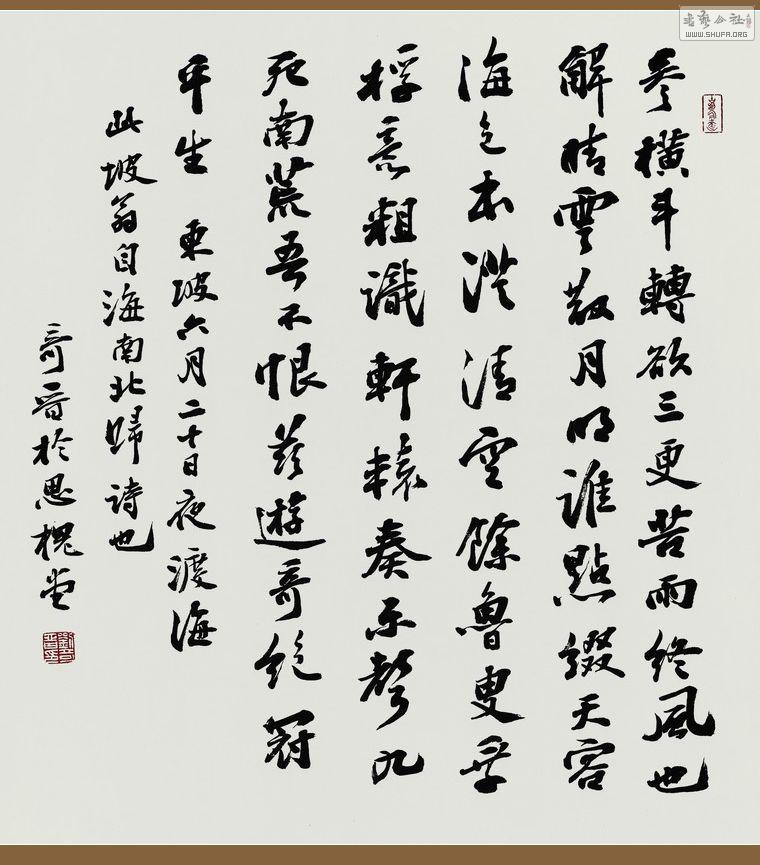 書藝公社
WWW.SHUFA.ORG
參橫斗轉欲三更苦雨終風也
解晴雲散月明誰點綴天容
海色本澄清空餘魯叟乘
桴意粗識軒轅奏樂聲九
死南荒吾不恨茲遊奇絕冠
平生 東坡六月二十日夜渡海
此坡翁自海南北歸詩也
奇晉於思槐堂